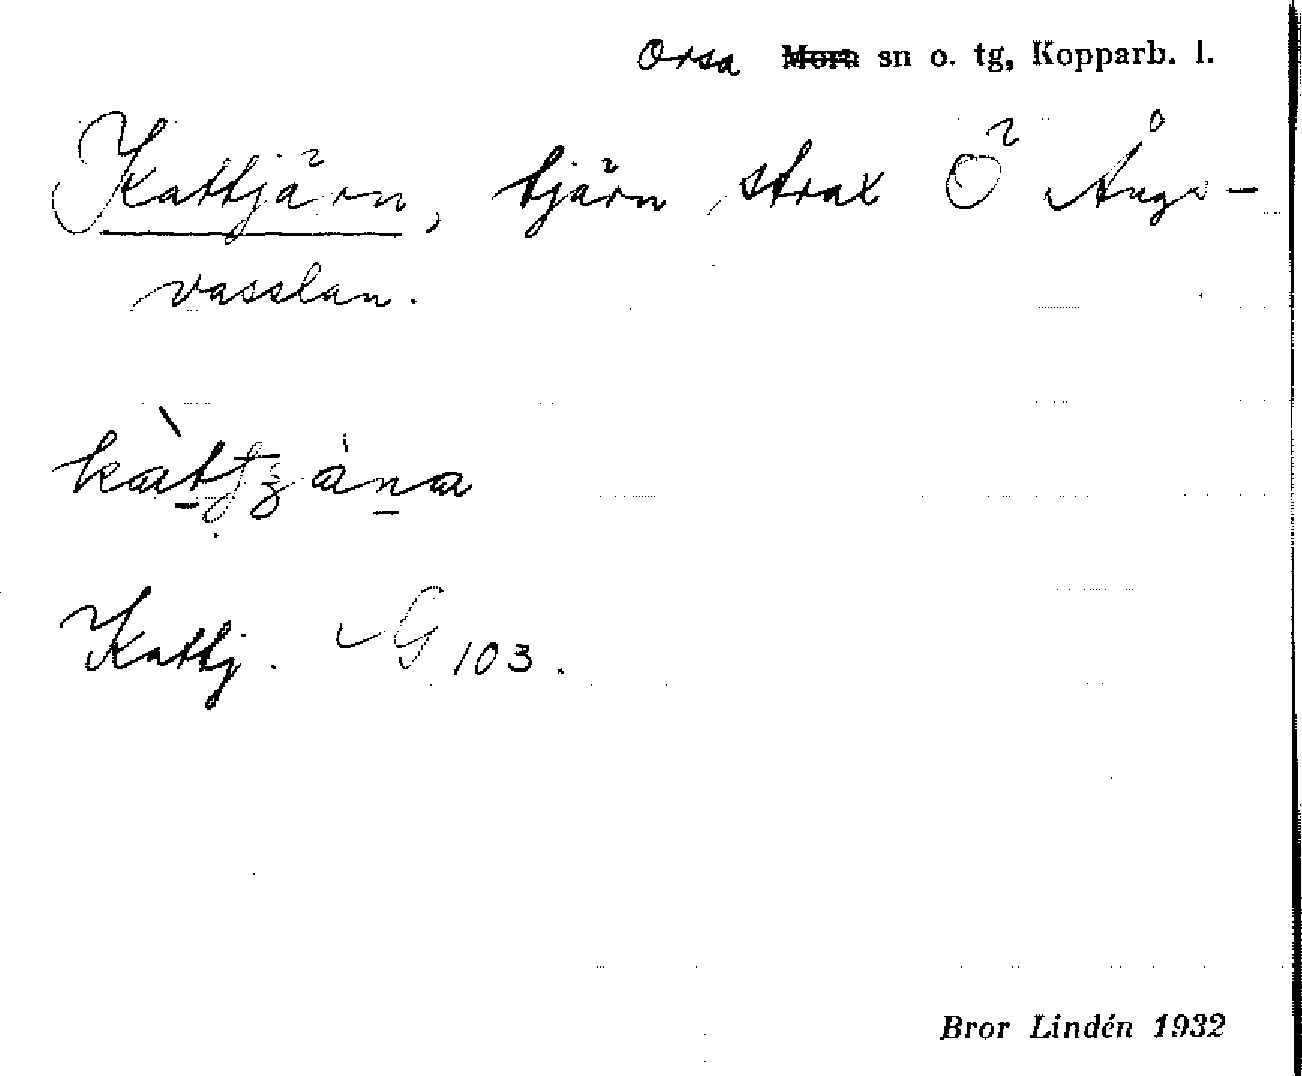 Orsa Mora sn o. tg, Kopparb. l.
Kattjärn, tjärn strax Ö Ångs-
vasslan.
Kattj. G 103.
Bror Lindén 1932